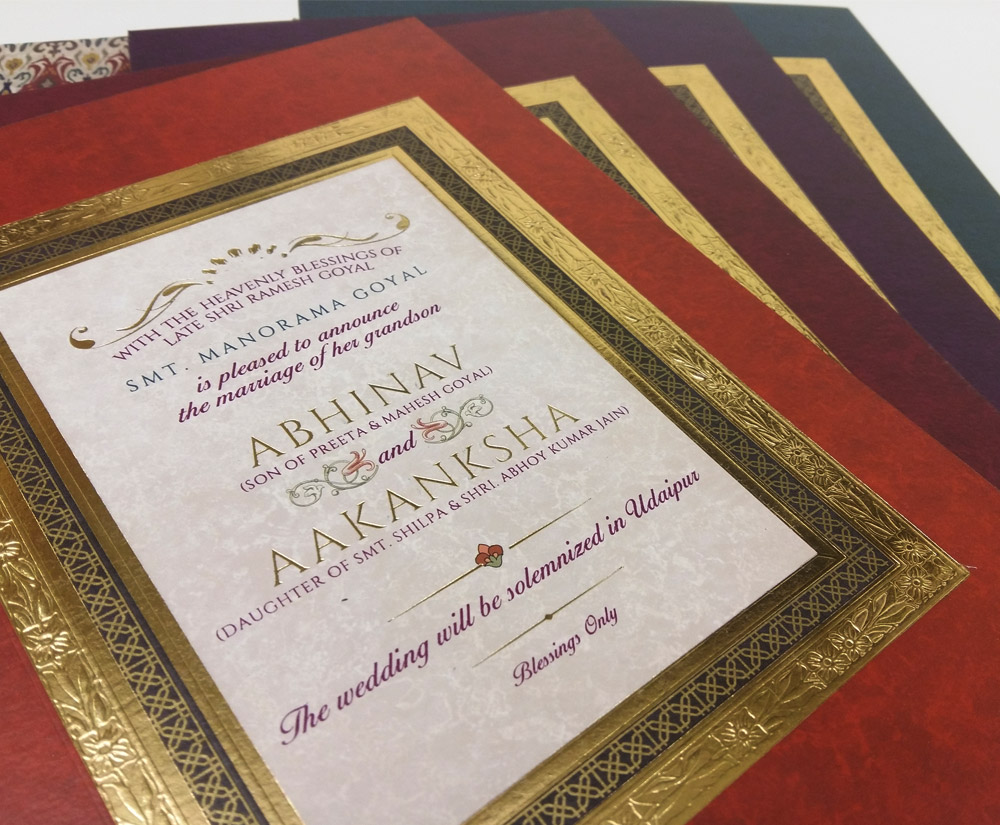 WITH THE HEAVENLY BLESSINGS OF
LATE SHRI RAMESH GOYAL
SMT. MANORAMA GOYAL
is pleased to announce
the marriage of her grandson
ABHINAV
(SON OF PREETA & MAHESH GOYAL)
and
AAKANKSHA
(DAUGHTER OF SMT. SHILPA & SHRI. ABHOY KUMAR JAIN)
The wedding will be solemnized in Udaipur
Blessings Only